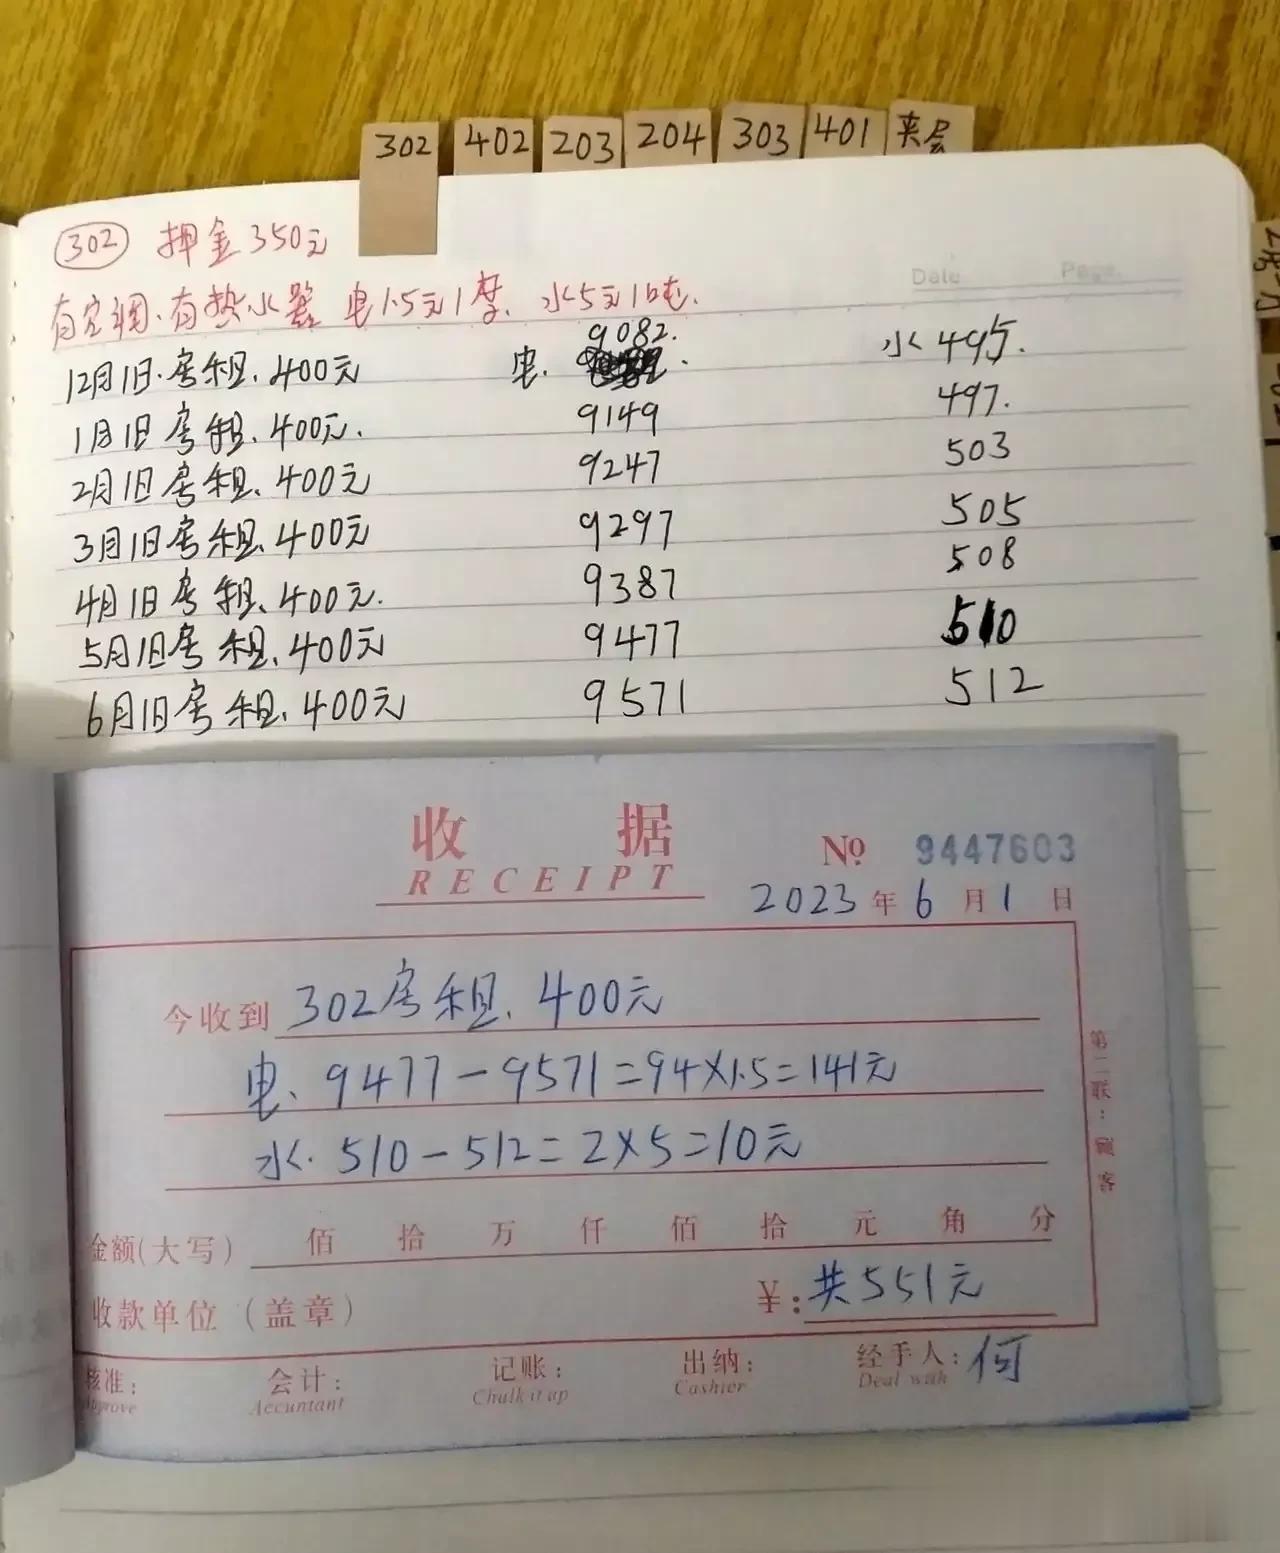 302 402 203 204 303 401 夹层
302 押金350元
Date Page.
有空调、有热水器 电1.5元1度、水5元1吨.
9082.
12月1日.房租.400元 电. 水495.
1月1日房租.400元. 9149 497.
2月1日房租、400元 9247 503
3月1日房租、400元 9297 505
4月1日房租、400元. 9387 508
5月1日房租、400元 9477 510
6月1日房租、400元 9571 512
收据
RECEIPT
№ 9447603
2023年6月1日
今收到 302房租、400元
电、9477-9571=94×1.5=141元
水. 510-512=2×5=10元
金额(大写) 佰 拾 万 仟 佰 拾 元 角 分
收款单位(盖章) ¥:共551元
核准: 会计: 记账: 出纳: 经手人:何
Approve Accuntant Chulk it up Cashier Deal with
第二联:顾客